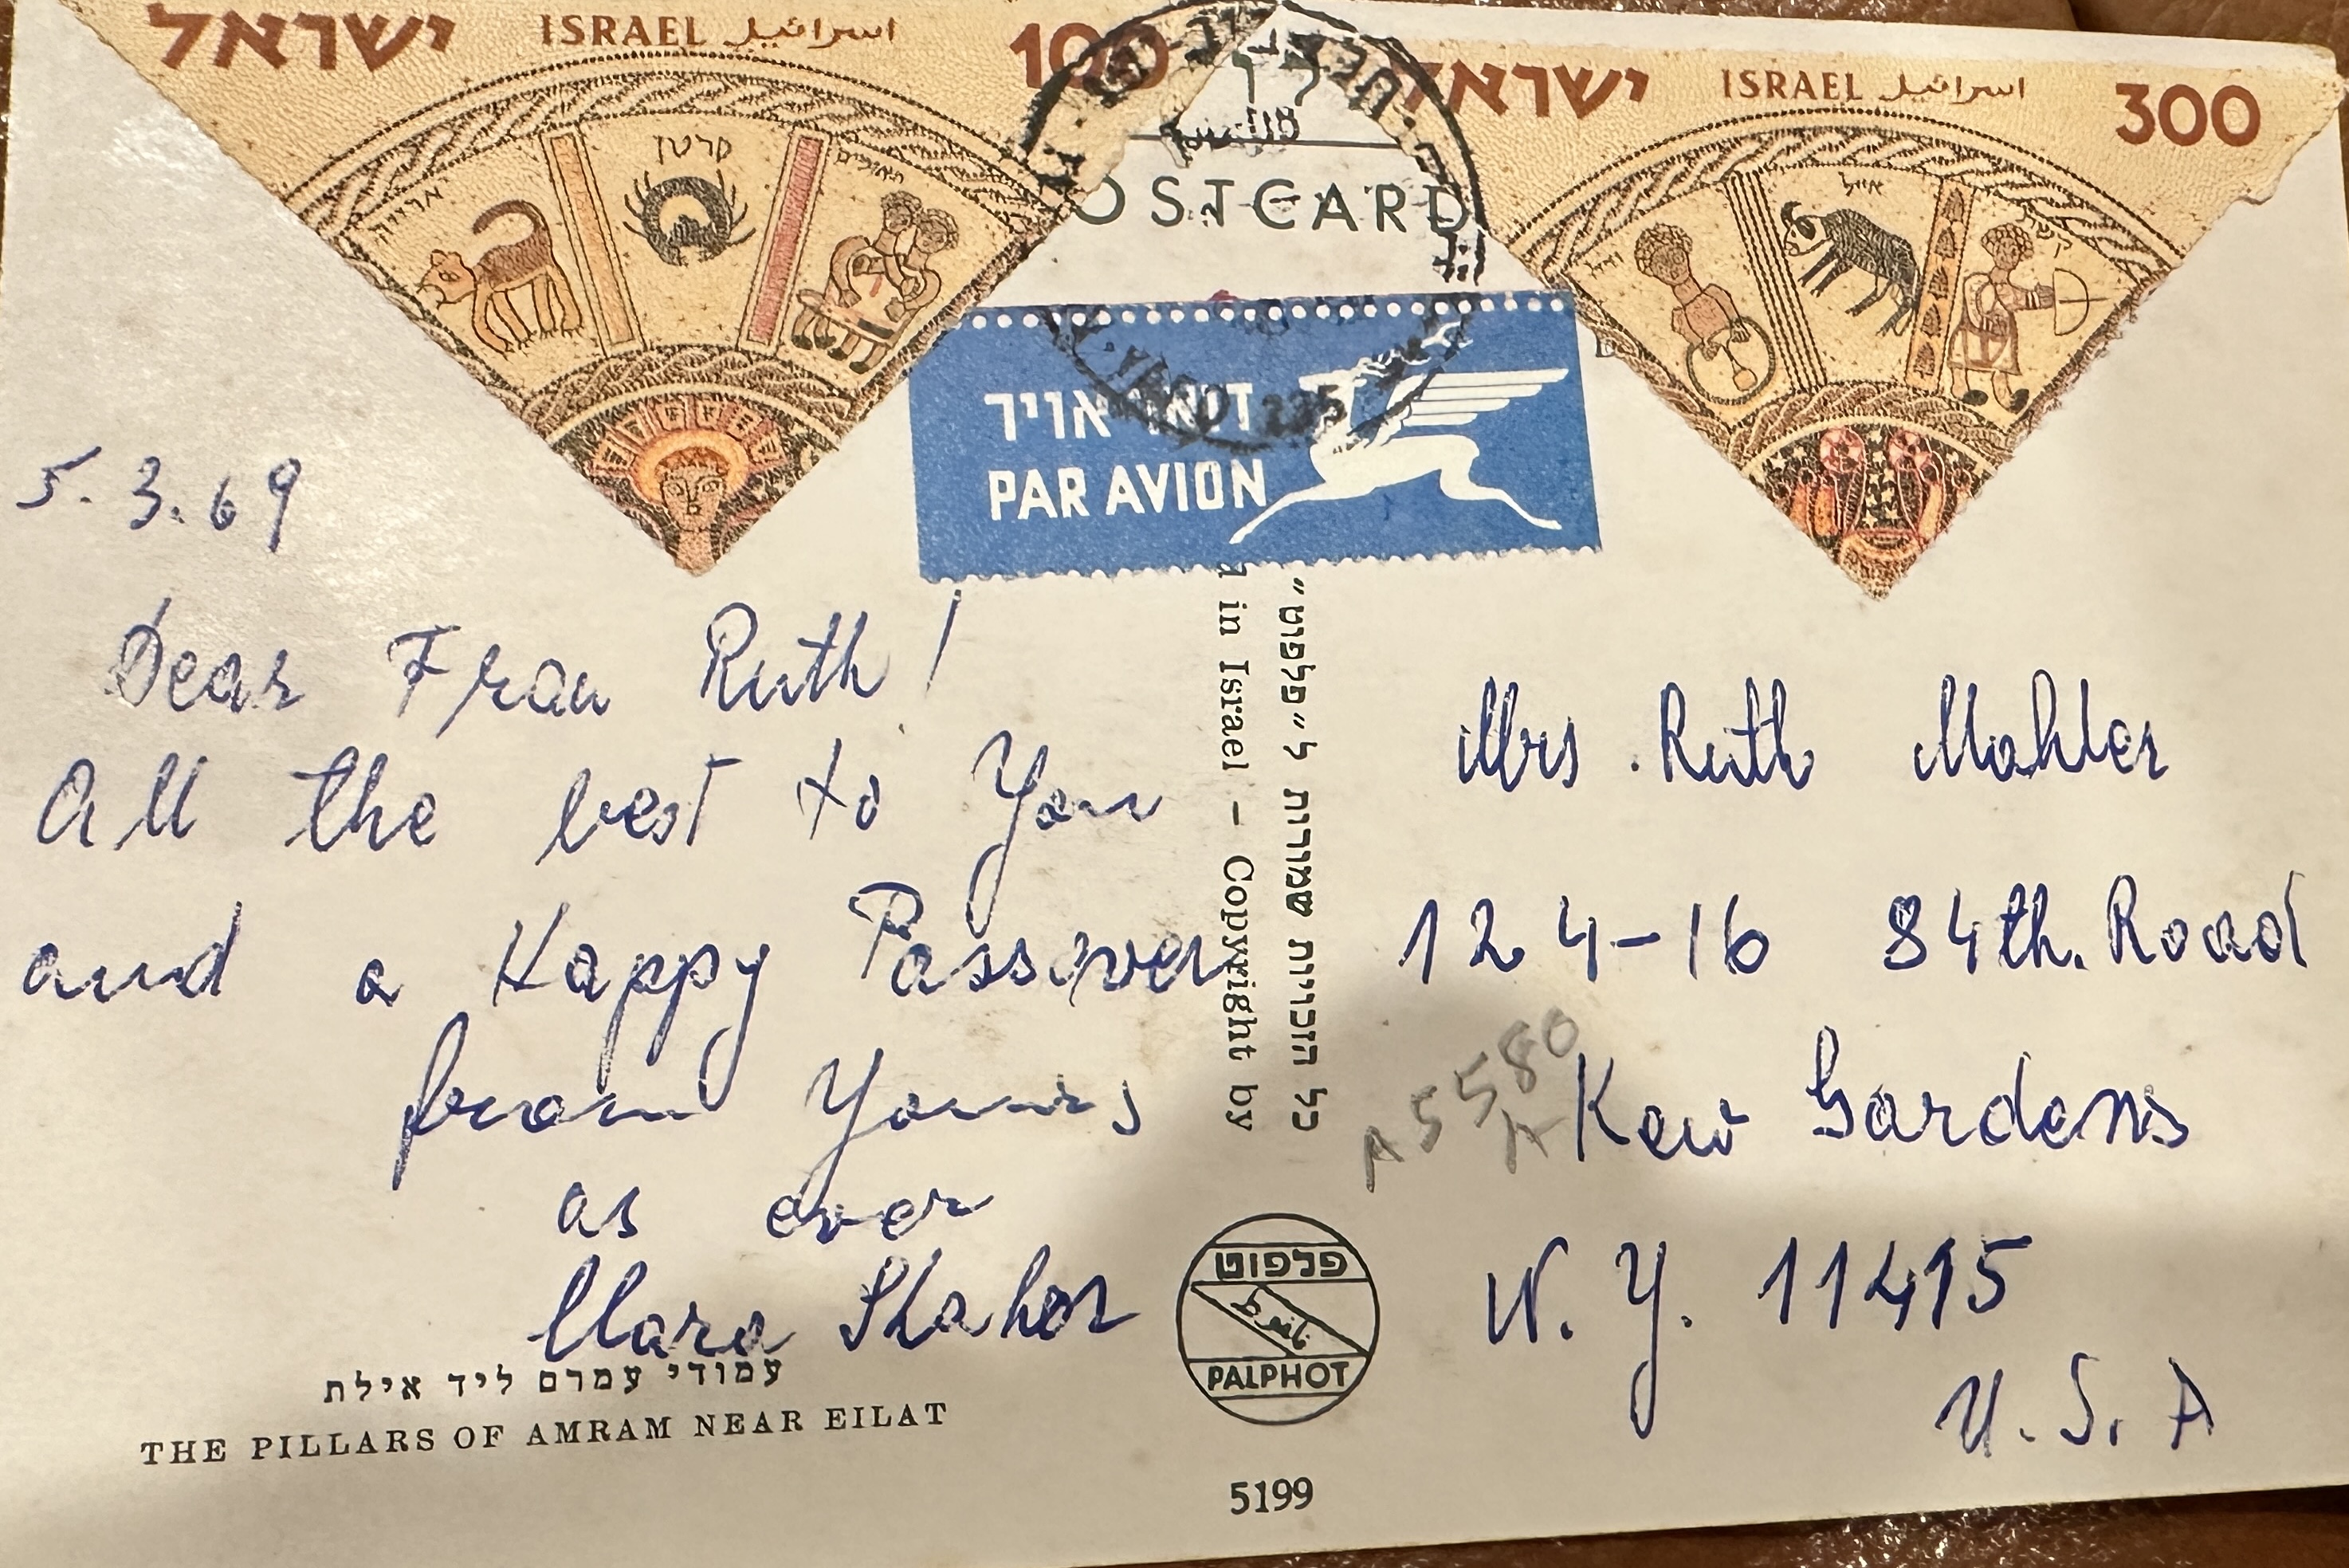 ישראל ISRAEL اسرائيل 100
אריה סרטן תאומים
ישראל ISRAEL اسرائيل 300
דלי אייל קשת
POSTCARD
דואר אויר
PAR AVION
5.3.69
Dear Frau Ruth!
All the best to You
and a Happy Passover
from Yours
as ever
Clara Shahor
עמודי עמרם ליד אילת
THE PILLARS OF AMRAM NEAR EILAT
in Israel – Copyright by
כל הזכויות שמורות ל״פלפוט״
פלפוט
PALPHOT
5199
Mrs. Ruth Mahler
124-16 84th. Road
A 5580
A
Kew Gardens
N.Y. 11415
U.S.A